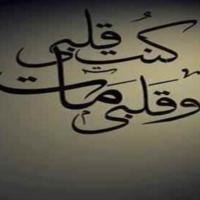 كنت قلبي
وقلبي مات